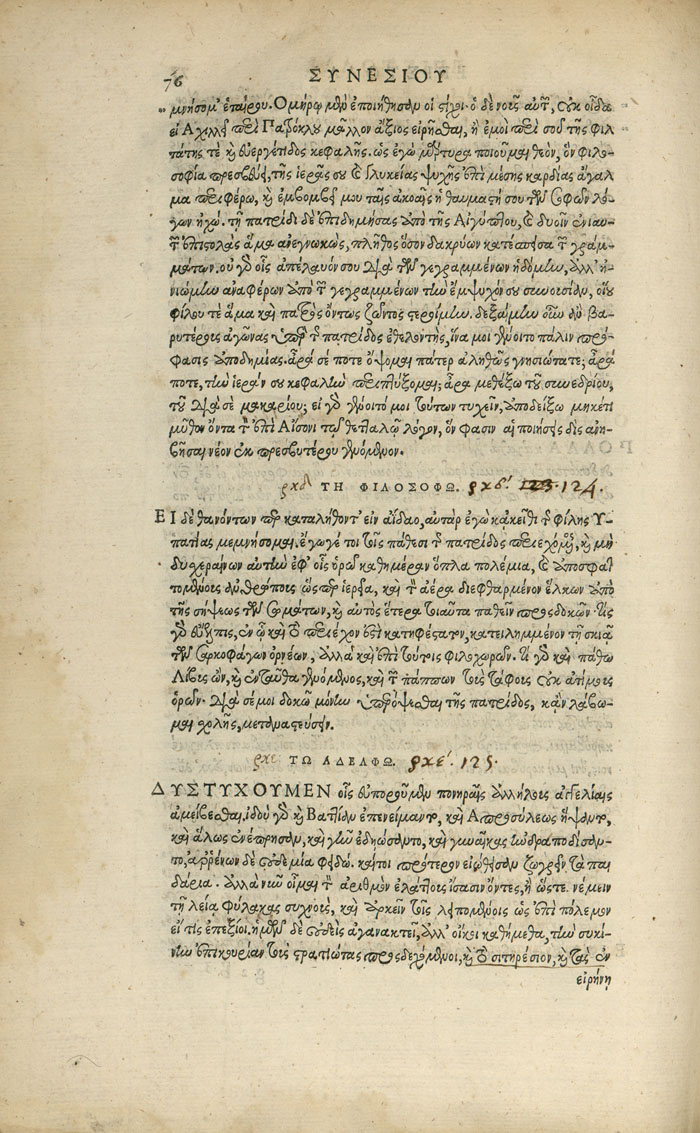 76
ΣΥΝΕΣΙΟΥ
μνήσομ' ἑταίρου. Ομήρῳ μὲν ἐποιήθησαν οἱ στίχοι· ὁ δὲ νοῦς αὐτῶν, οὐκ οἶδα
εἰ Αχιλλεῖ περὶ Πατρόκλου μᾶλλον ἄξιος εἰρῆσθαι, ἢ ἐμοὶ περὶ σοῦ τῆς φιλ
τάτης τὲ καὶ εὐεργέτιδος κεφαλῆς. ὡς ἐγὼ μάρτυρα ποιοῦμαι θεὸν, ὃν φιλο-
σοφία πρεσβεύει, τῆς ἱερᾶς σου καὶ γλυκείας ψυχῆς ἐπὶ μέσης καρδίας ἄγαλ
μα περιφέρω, καὶ ἐμβομβεῖ μου ταῖς ἀκοαῖς ἡ θαυμαστή σου τῶν σοφῶν λό-
γων ἠχώ. τῇ πατρίδι δὲ ἐπιδημήσας ἀπὸ τῆς Αἰγύπτου, καὶ δυοῖν ἐνιαυ-
τῶν ἐπιστολὰς ἅμα ἀνεγνωκὼς, πλῆθος ὅσον δακρύων κατέσπεισα τῶν γραμ-
μάτων. οὐ γὰρ οἷς ἀπέλαυόν σου διὰ τῶν γεγραμμένων ἡδόμην, ἀλλ' ἠ-
νιώμην ἀναφέρων ἀπὸ τῶν γεγραμμένων τὴν ἔμψυχόν σου συνουσίαν, οἵου
φίλου τὲ ἅμα καὶ πατρὸς ὄντως ζῶντος στεροίμην. δεξαίμην οὖν ἂν βα-
ρυτέρους ἀγῶνας ὑπὲρ τῆς πατρίδος ἐθελοντὴς, ἵνα μοι γένοιτο πάλιν πρό-
φασις ἀποδημίας. ἆρά σέ ποτε ὄψομαι πάτερ ἀληθῶς γνησιώτατε; ἆρά
ποτε, τὴν ἱεράν σου κεφαλὴν περιπτύξομαι; ἆρα μεθέξω τοῦ συνεδρίου,
τοῦ διὰ σὲ μακαρίου; εἰ γὰρ γένοιτό μοι τούτων τυχεῖν, ἀποδείξω μηκέτι
μῦθον ὄντα τὸν ἐπὶ Αἴσονι τῷ θετταλῷ λόγον, ὅν φασιν αἱ ποιήσεις δὶς ἀνη-
βῆσαι νέον ἐκ πρεσβυτέρου γενόμενον.
ρκδ ΤΗ ΦΙΛΟΣΟΦΩ. ρκδʹ. 123. 124.
ΕΙ δὲ θανόντων περ καταλήθοντ' εἰν ἀΐδαο, αὐτὰρ ἐγὼ κἀκεῖθι τῆς φίλης Υ-
πατίας μεμνήσομαι, ἔγωγέ τοι τοῖς πάθεσι τῆς πατρίδος περιεχόμενος, καὶ μὴ
δυσχεραίνων αὐτὴν ἐφ' οἷς ὁρῶ καθημέραν ὅπλα πολέμια, καὶ ἀποσφατ
τομένους ἀνθρώπους ὥσπερ ἱερεῖα, καὶ τὸν ἀέρα διεφθαρμένον ἕλκων ἀπὸ
τῆς σήψεως τῶν σωμάτων, καὶ αὐτὸς ἕτερα τοιαῦτα παθεῖν προσδοκῶν· τίς
γὰρ εὔελπις, ἐν ᾧ καὶ τὸ περιέχον ἐστὶ κατηφέστατον, κατειλημμένον τῇ σκιᾷ
τῶν σαρκοφάγων ὀρνέων, ἀλλὰ καὶ ἐπὶ τούτοις φιλοχωρῶν. τί γὰρ καὶ πάθω
Λίβυς ὢν, καὶ ἐνταῦθα γενόμενος, καὶ τῶν πάππων τοὺς τάφους οὐκ ἀτίμους
ὁρῶν· διὰ σέ μοι δοκῶ μόνην ὑπερόψεσθαι τῆς πατρίδος, κἂν λάβω-
μαι σχολῆς, μεταναστεύσειν.
ρκε ΤΩ ΑΔΕΛΦΩ. ρκεʹ. 125.
ΔΥΣΤΥΧΟΥΜΕΝ οἷς εὐποροῦμεν πονηραῖς ἀλλήλους ἀγγελίαις
ἀμείβεσθαι. ἰδοὺ γὰρ καὶ Βαττίαν ἐπενείμαντο, καὶ Απροσύλεως ἥψαντο,
καὶ ἅλως ἐνέπρησαν, καὶ γῆν ἐδῄωσαντο, καὶ γυναῖκας ἠνδραποδίσαν-
το, ἀρρένων δὲ οὐδεμία φειδώ. καίτοι πρότερον εἰώθησαν ζωγρεῖν τὰ παι
δάρια. ἀλλὰ νῦν οἶμαι τὸν ἀριθμὸν ἐλάττους ἴσασιν ὄντες, ἢ ὥστε νέμειν
τῇ λείᾳ φύλακας συχνοὺς, καὶ ἀρκεῖν τοῖς λειπομένοις ὡς ἐπὶ πόλεμον
εἴ τις ἐπεξίοι. ἡμῶν δὲ οὐδεὶς ἀγανακτεῖ, ἀλλ' οἴκοι καθήμεθα, τὴν συκί-
νην ἐπικουρίαν τοὺς στρατιώτας προσδεχόμενοι, καὶ τὸ σιτηρέσιον, καὶ τὰς ἐν
εἰρήνῃ